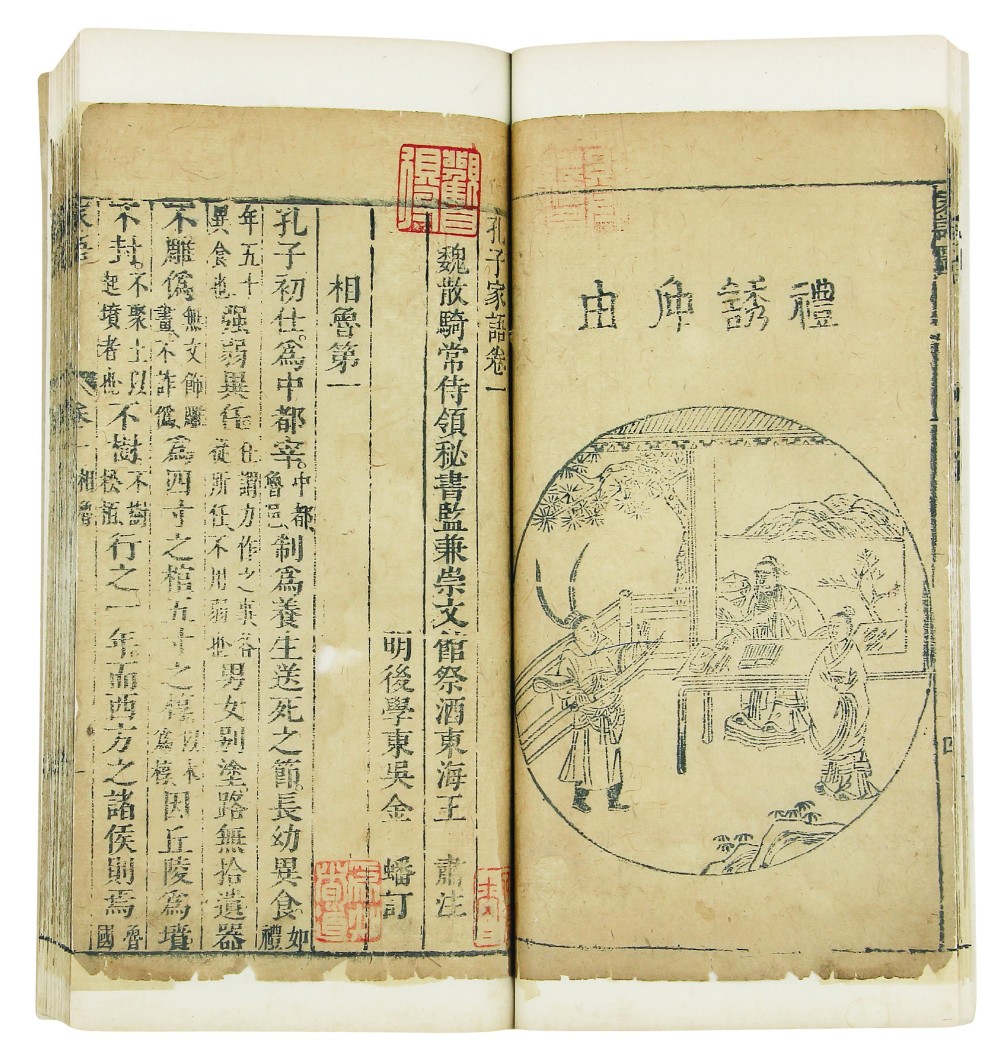 禮誘仲由
四
孔子家語卷一
魏散騎常侍領秘書監兼崇文館祭酒東海王 肅注
明後學東吳金 蟠訂
相魯第一
孔子初仕。爲中都宰。中都魯邑制爲養生送死之節。長幼異食。如禮
年五十異食也强弱異任任謂力作之事各從所任不用弱也男女别塗路無拾遺器
不雕爲無文飾雕畫不詐僞爲四寸之棺五寸之椁以木爲椁因丘陵爲墳
不封。不聚土以起墳者也不樹不樹松栢行之一年而西方之諸侯則焉魯國
家語 卷一 相魯